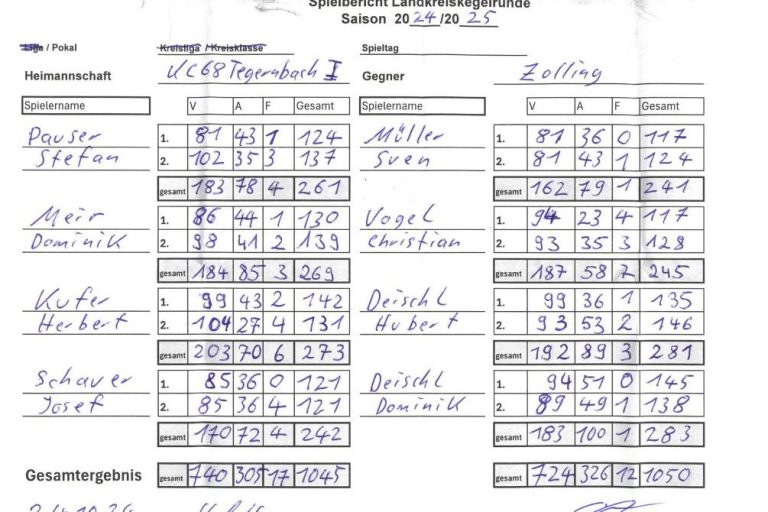 Spielbericht Landkreiskegelrunde
Saison 2024/2025
Liga / Pokal Kreisliga / Kreisklasse Spieltag
Heimannschaft KC68 Tegernbach I Gegner Zolling
Spielername V A F Gesamt Spielername V A F Gesamt
Pauser 1. 81 43 1 124 Müller 1. 81 36 0 117
Stefan 2. 102 35 3 137 Sven 2. 81 43 1 124
gesamt 183 78 4 261 gesamt 162 79 1 241
Meir 1. 86 44 1 130 Vogel 1. 94 23 4 117
Dominik 2. 98 41 2 139 Christian 2. 93 35 3 128
gesamt 184 85 3 269 gesamt 187 58 7 245
Kufer 1. 99 43 2 142 Deischl 1. 99 36 1 135
Herbert 2. 104 27 4 131 Hubert 2. 93 53 2 146
gesamt 203 70 6 273 gesamt 192 89 3 281
Schauer 1. 85 36 0 121 Deischl 1. 94 51 0 145
Josef 2. 85 36 4 121 Dominik 2. 89 49 1 138
gesamt 170 72 4 242 gesamt 183 100 1 283
Gesamtergebnis gesamt 740 305 17 1045 gesamt 724 326 12 1050